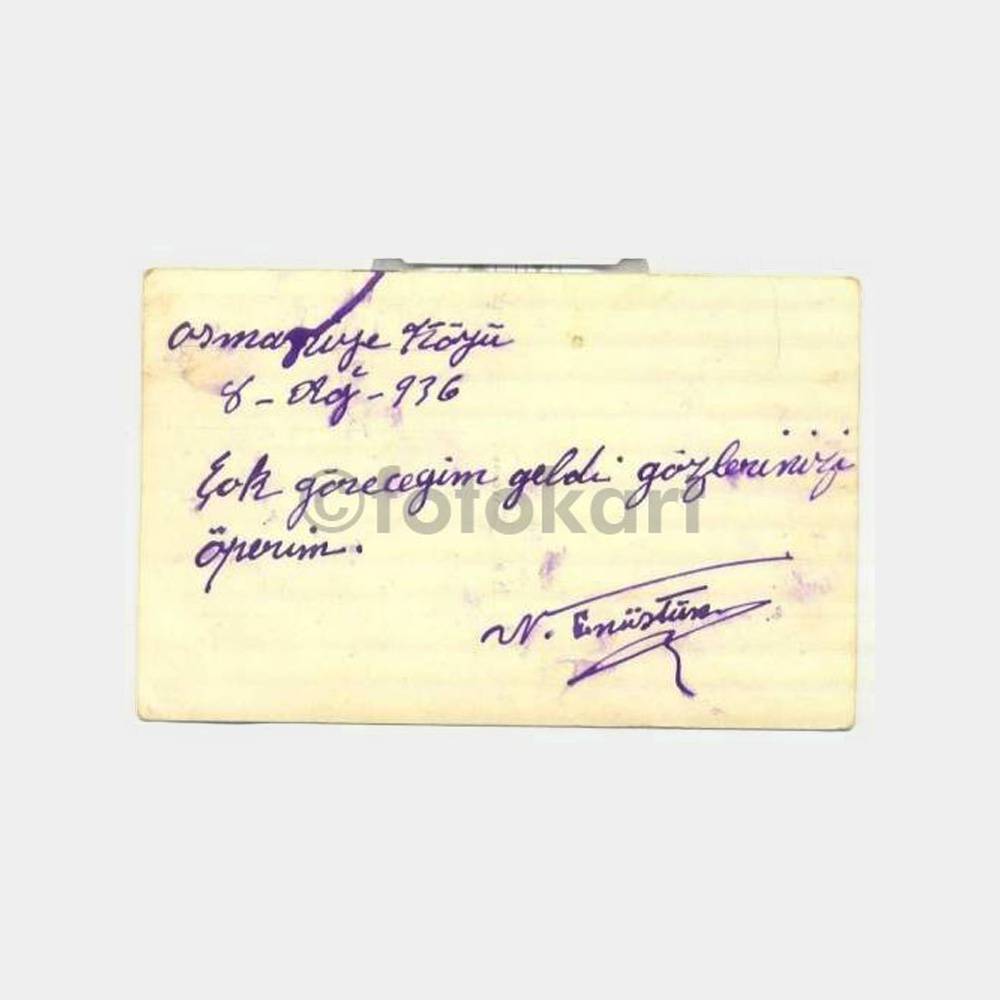 Osmaniye Köyü
8 - Ağ - 936
Çok göreceğim geldi gözlerinizi
öperim.
N. Enüstün
©fotokart